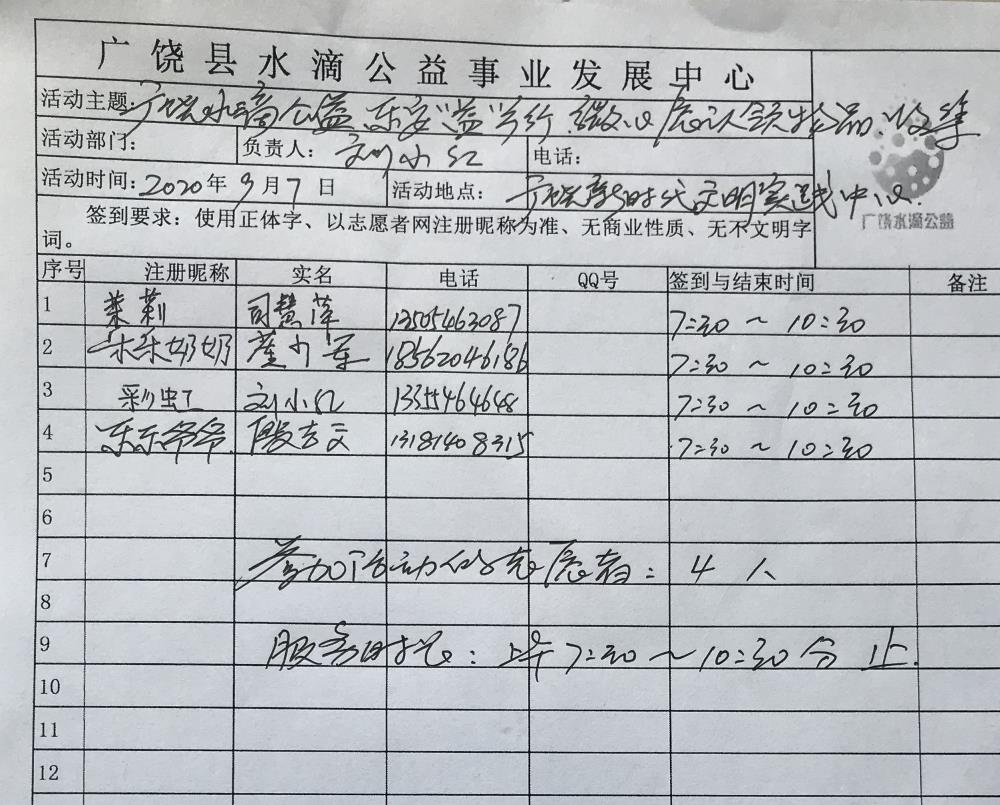 广饶县水滴公益事业发展中心
活动主题: 广饶水滴公益 东安“益”步行 微心愿认领物品收集
活动部门: 负责人: 刘小红 电话:
活动时间: 2020年9月7日 活动地点: 广饶新时代文明实践中心.
广饶水滴公益
签到要求: 使用正体字、以志愿者网注册昵称为准、无商业性质、无不文明字
词。
序号 注册昵称 实名 电话 QQ号 签到与结束时间 备注
1 茉莉 司慧萍 13505463087 7:30 ~ 10:30
2 乐乐奶奶 18562046186 7:30 ~ 10:30
3 彩虹 刘小红 13355464648 7:30 ~ 10:30
4 东东爷爷 13181408315 7:30 ~ 10:30
5
6
7 参加活动的志愿者: 4 人
8
9 服务时长: 上午 7:30 ~ 10:30分 止.
10
11
12